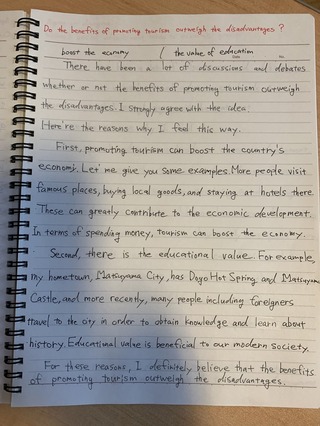 Do the benefits of promoting tourism outweigh the disadvantages?
boost the economy / the value of education
There have been a lot of discussions and debates
whether or not the benefits of promoting tourism outweigh
the disadvantages. I strongly agree with the idea.
Here're the reasons why I feel this way.
First, promoting tourism can boost the country's
economy. Let me give you some examples. More people visit
famous places, buying local goods, and staying at hotels there.
These can greatly contribute to the economic development.
In terms of spending money, tourism can boost the economy.
Second, there is the educational value. For example,
my hometown, Matsuyama City, has Dogo Hot Spring and Matsuyama
Castle, and more recently, many people including foreigners
travel to the city in order to obtain knowledge and learn about
history. Educational value is beneficial to our modern society.
For these reasons, I definitely believe that the benefits
of promoting tourism outweigh the disadvantages.